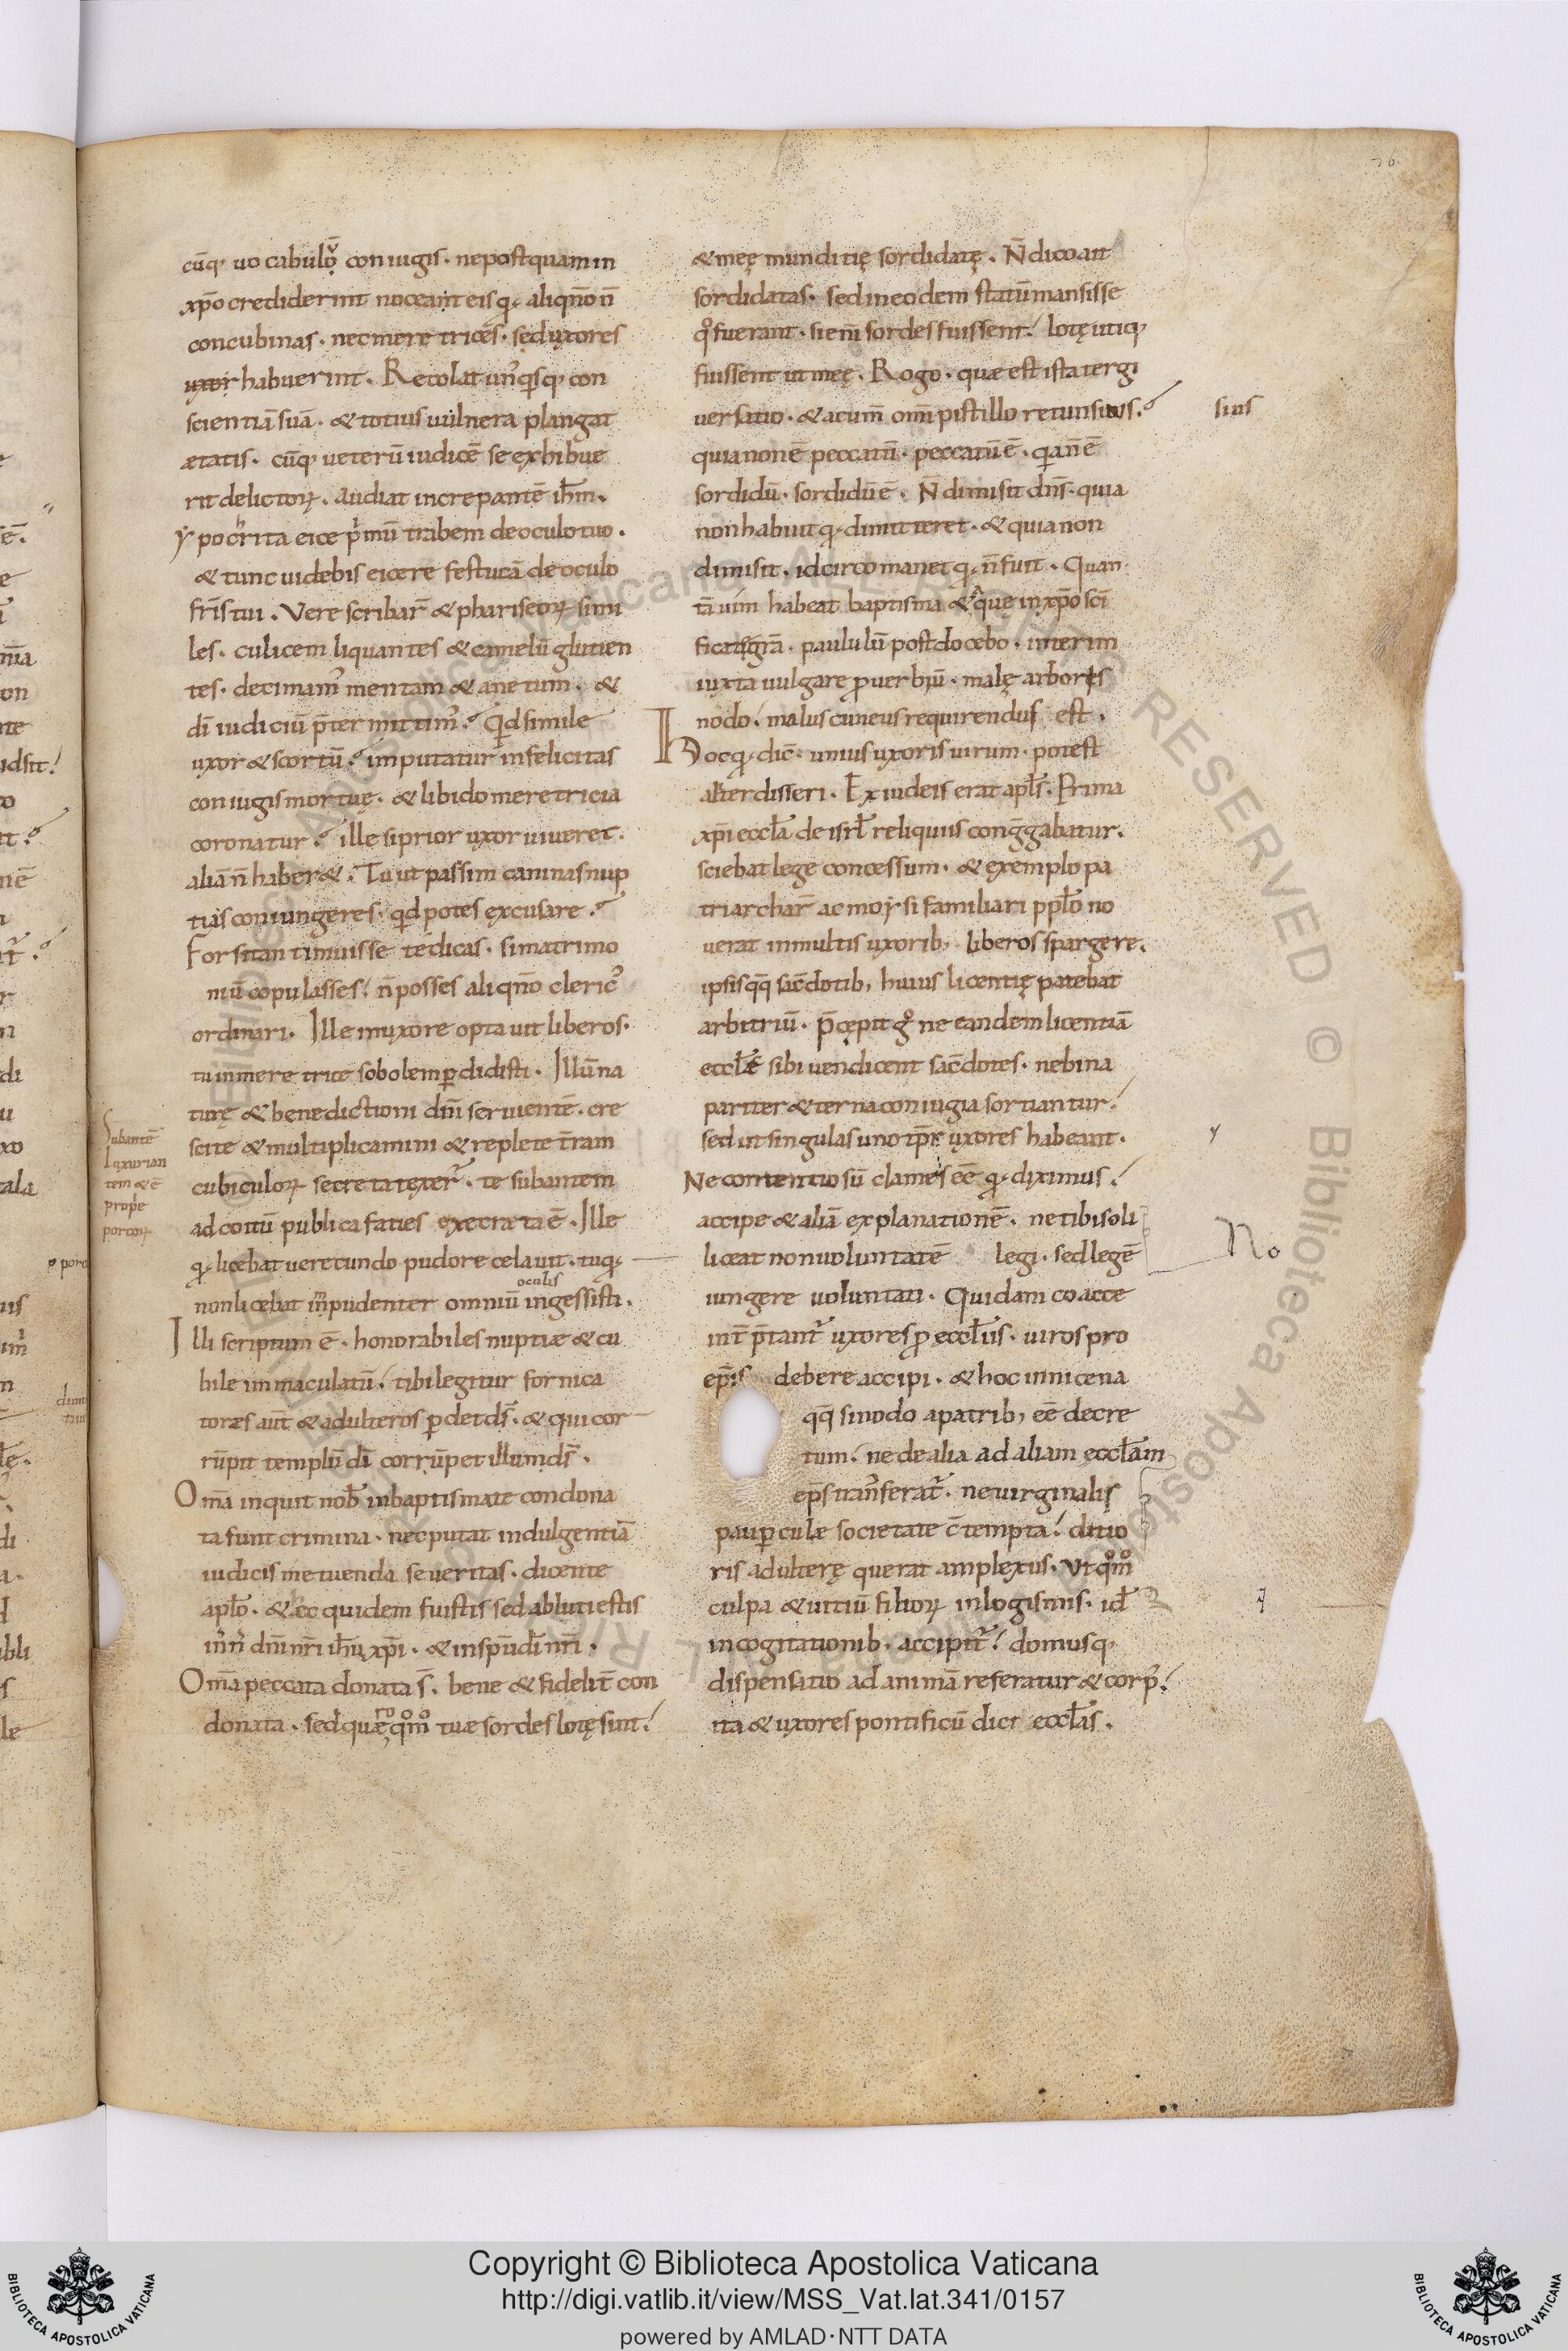 76
cūq; uocabulo coniugis. ne postquam in
xp̄o crediderint noceant eis q; aliqn̄o n̄
concubinas. nec meretrices. sed uxores
uxor habuerint. Recolat un'qsq; con
scientiā suā. & totius uulnera plangat
ætatis. cūq; ueterū iudicē se exhibue
rit delictoꝝ. audiat increpantē ih̄m.
ypocrita eice p̍mū trabem de oculo tuo.
& tunc uidebis eicere festucā de oculo
fr̄is tui. Vere scribar̄ & phariseoꝝ simi
les. culicem liquantes & camelū glutien
tes. decimam' mentam & anetum. &
dī iudiciū p̄termittim'. Qid simile
uxor & scortū. imputatur infelicitas
coniugis mortuę. & libido meretricia
coronatur. ille si prior uxor uiueret.
aliā n̄ haber&. Tu ut passim caninas nup
tias coniungeres. qd potes excusare.
Forsitan timuisse te dicas. si matrimo
niū copulasses. n̄ posses aliqn̄o cleric'
ordinari. Ille in uxore optauit liberos.
tu in meretrice sobolem ꝑdidisti. Illū na
turę & benedictioni dn̄i seruientē. cre
scite & multiplicamini & replete t̄ram
cubiculoꝝ secreta texer̄. te subantem
ad coitū publica facies execrata ē. Ille
q; licebat uerecundo pudore celauit. tu q;
non licebat inpudenter omniū oculis ingessisti.
Illi scriptum ē. honorabiles nuptiæ & cu
bile immaculatū. tibi legitur fornica
tores aut̄ & adulteros ꝑdet ds̄. & qui cor
rūpit templū dī corrūpet illum ds̄.
Om̄a inquit nob̄ in baptismate condona
ta sunt crimina. nec putat indulgentiā
iudicis metuenda seueritas. dicente
apl̄o. & hęc quidem fuistis sed abluti estis
in n̄ dn̄i nr̄i ih̄u xp̄i. & in sp̄u dī nr̄i.
Om̄a peccata donata s̄. bene & fidelit̄ con
donata. sed quæro qm̊o tuæ sordes lotę sunt.
Subantē
luxurian
tem & ē
prop̍e
porcoꝝ
& meę munditię sordidatę. N̄ dico ait
sordidatas. sed in eodem statū mansisse
q̊ fuerant. si enī sordes fuissent. lotę utiq;
fuissent ut meę. Rogo. quæ est ista tergi
uersatio. & acum̄ omī pistillo retunsius.
sius
quia non ē peccatū. peccatū ē. qia n̄ ē
sordidū. sordidū ē. N̄ dimisit dn̄s. quia
non habuit q; dimitteret. & quia non
dimisit. idcirco manet q; n̄ fuit. Quan
tā uim habeat baptisma & aque in xp̄o sc̄i
ficat grā. paululū post docebo. interim
iuxta uulgare ꝓuerbiū. malę arboris
nodo. malus cuneus requirendus est.
Hoc q; dic̄. unius uxoris uirum. potest
aliter disseri. Ex iudeis erat apl̄s. Prima
xp̄i eccl̄a de isrl̄ reliquiis congḡabatur.
sciebat lege concessum. & exemplo pa
triarchar̄ ac moysi familiari ppl̄o no
uerat in multis uxorib; liberos spargere.
ipsis qq̄ sac̄dotib; huius licentię patebat
arbitriū. p̄cępit g̊ ne eandem licentiā
eccl̄ę sibi uendicent sac̄dotes. ne bina
pariter & terna coniugia sortiantur.
sed ut singulas uno tp̄r uxores habeant.
Ne contentiosū clames eē q; diximus.
accipe & aliā explanationē. ne tibi soli
liceat non uoluntatē legi. sed legē
No
iungere uoluntati. Quidam coacte
int̄p̄tant̄ uxores ꝓ eccl̄iis. uiros pro
ep̄is debere accipi. & hoc in nicena
qq̄ sinodo a patrib; eē decre
tum. ne de alia ad aliam eccl̄am
ep̄s transferat̄. ne uirginalis
pauꝑculæ societate c̄tempta. ditio
ris adulterę querat amplexus. Vt qm̊o
culpa & uitiū filioꝝ in logismis. id̄
in cogitationib. accipit̄. domusq;
dispensatio ad animā referatur & corp'.
ita & uxores pontificū dici eccl̄as.
Copyright © Biblioteca Apostolica Vaticana
http://digi.vatlib.it/view/MSS_Vat.lat.341/0157
powered by AMLAD·NTT DATA
BIBLIOTECA APOSTOLICA VATICANA
BIBLIOTECA APOSTOLICA VATICANA